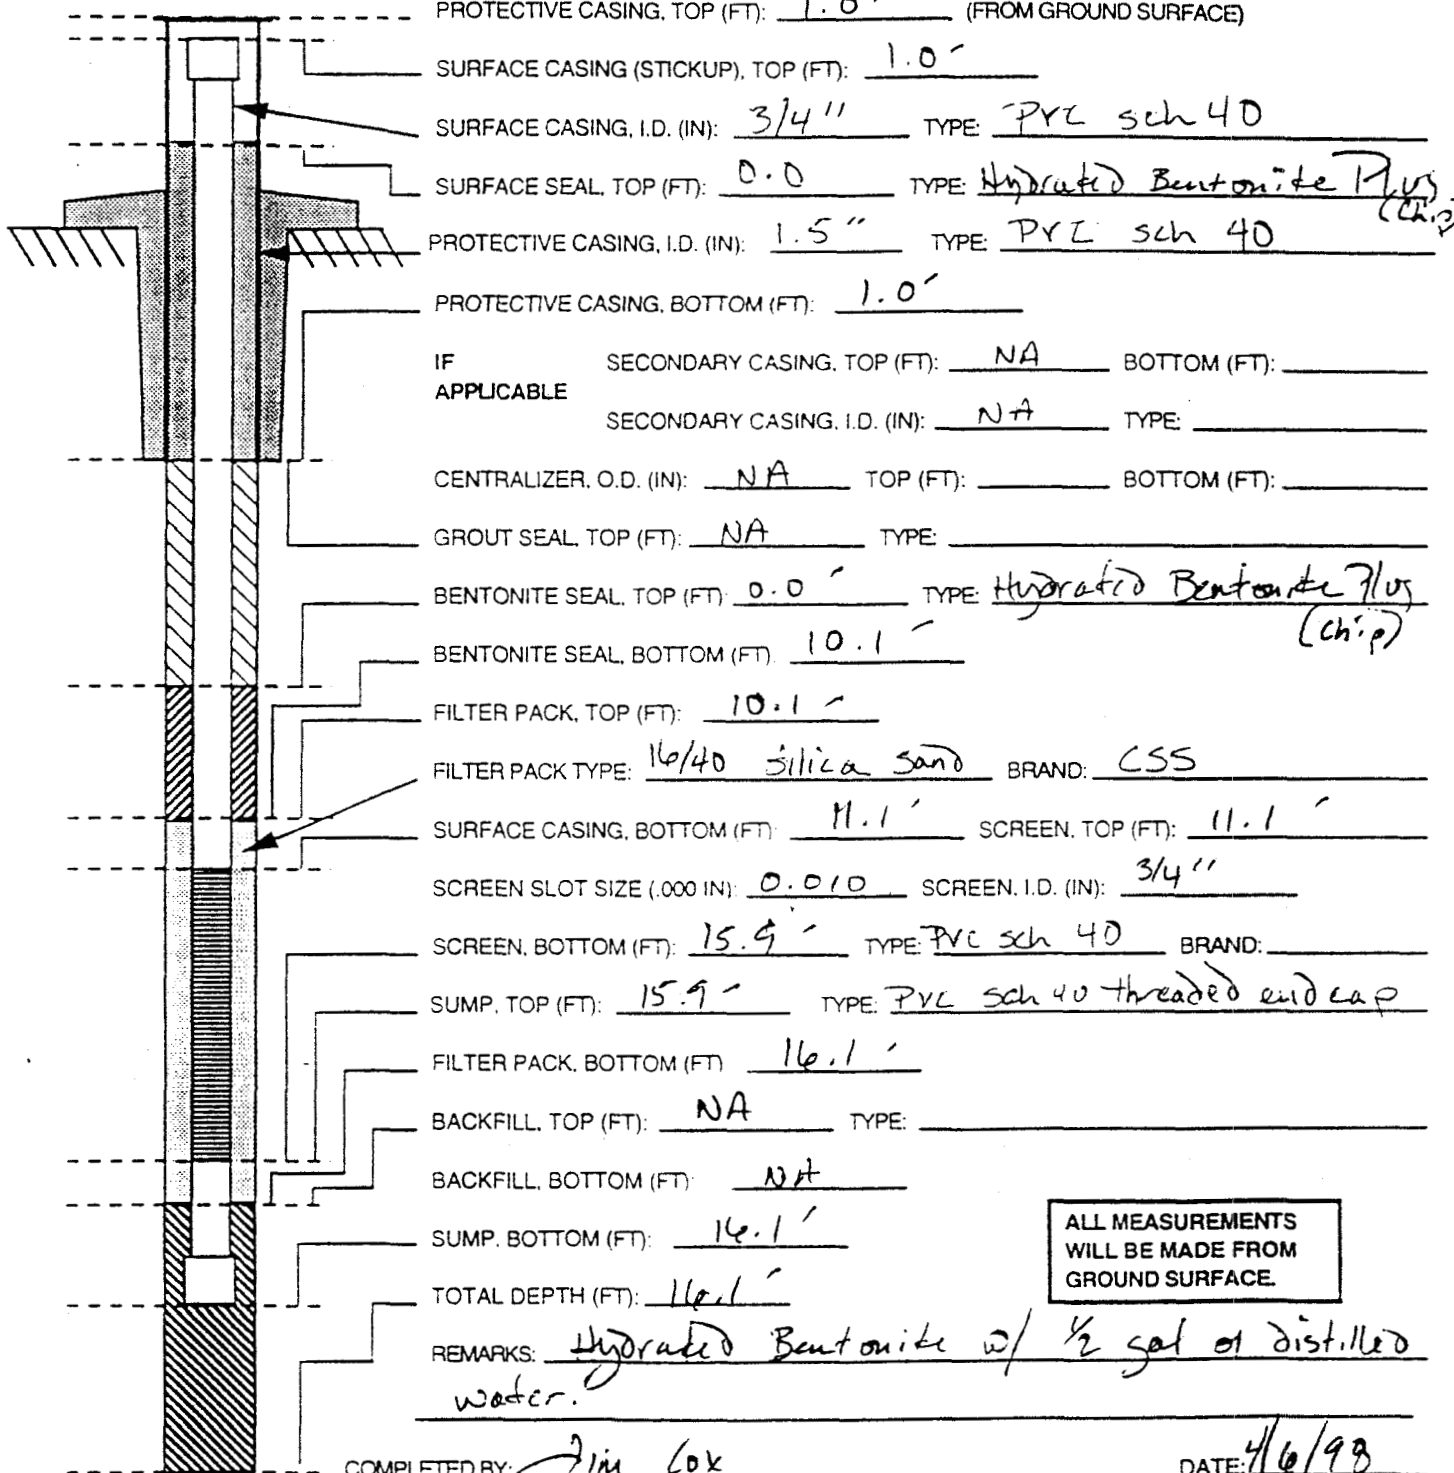 PROTECTIVE CASING, TOP (FT): 1.0' (FROM GROUND SURFACE)
SURFACE CASING (STICKUP), TOP (FT): 1.0'
SURFACE CASING, I.D. (IN): 3/4" TYPE: PVC sch 40
SURFACE SEAL, TOP (FT): 0.0 TYPE: Hydrated Bentonite Plug
(Chip)
PROTECTIVE CASING, I.D. (IN): 1.5" TYPE: PVC sch 40
PROTECTIVE CASING, BOTTOM (FT): 1.0'
IF APPLICABLE SECONDARY CASING, TOP (FT): NA BOTTOM (FT):
SECONDARY CASING, I.D. (IN): NA TYPE:
CENTRALIZER, O.D. (IN): NA TOP (FT): BOTTOM (FT):
GROUT SEAL, TOP (FT): NA TYPE:
BENTONITE SEAL, TOP (FT) 0.0' TYPE: Hydrated Bentonite Plug
(Chip)
BENTONITE SEAL, BOTTOM (FT) 10.1'
FILTER PACK, TOP (FT): 10.1'
FILTER PACK TYPE: 16/40 silica sand BRAND: CSS
SURFACE CASING, BOTTOM (FT) 11.1' SCREEN, TOP (FT): 11.1'
SCREEN SLOT SIZE (.000 IN): 0.010 SCREEN, I.D. (IN): 3/4"
SCREEN, BOTTOM (FT): 15.9' TYPE: PVC sch 40 BRAND:
SUMP, TOP (FT): 15.9' TYPE: PVC sch 40 threaded end cap
FILTER PACK, BOTTOM (FT) 16.1'
BACKFILL, TOP (FT): NA TYPE:
BACKFILL, BOTTOM (FT): NA
SUMP, BOTTOM (FT): 16.1'
TOTAL DEPTH (FT): 16.1'
ALL MEASUREMENTS
WILL BE MADE FROM
GROUND SURFACE.
REMARKS: Hydrated Bentonite w/ 1/2 gal of distilled
water.
COMPLETED BY: Jim Cox DATE: 4/6/98